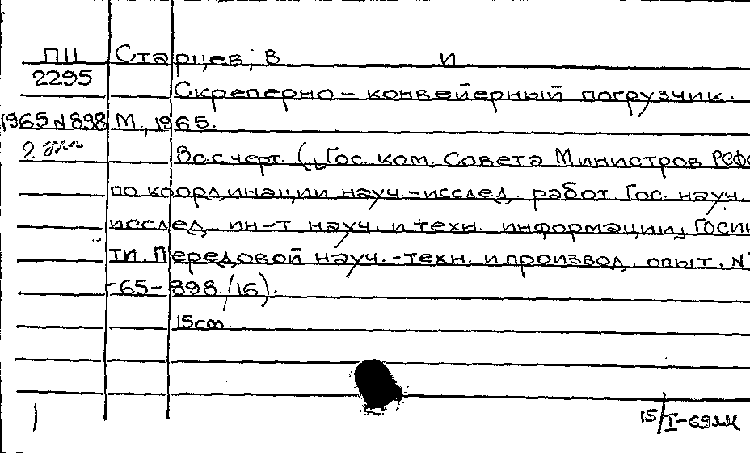 ПЦ Старцев, В И
2295
Скреперно – конвейерный погрузчик.
1965 N 898 М., 1965.
2
8с. черт. (Гос. ком. Совета Министров РСФС
по координации науч.-исслед. работ. Гос. науч.
исслед. ин-т науч. и техн. информации, ГОСИН
ТИ. Передовой науч.-техн. и производ. опыт. N
-65-898/16).
15cm
15/I-69